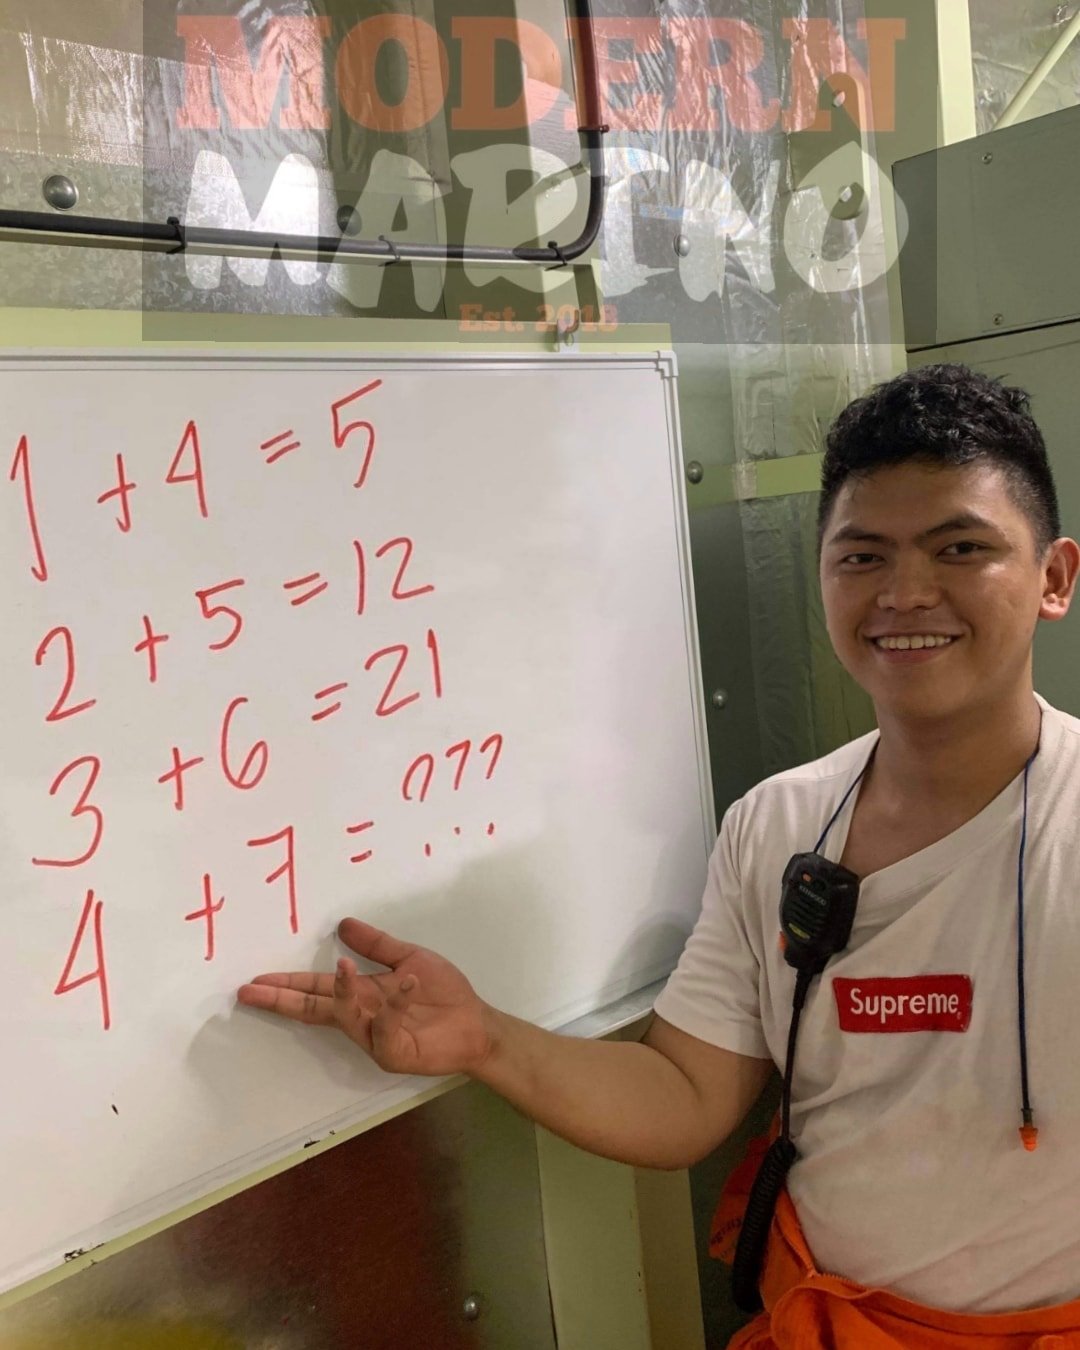 MODERN
MARINO
Est. 2018
1 + 4 = 5
2 + 5 = 12
3 + 6 = 21
4 + 7 = ???
KENWOOD
Supreme